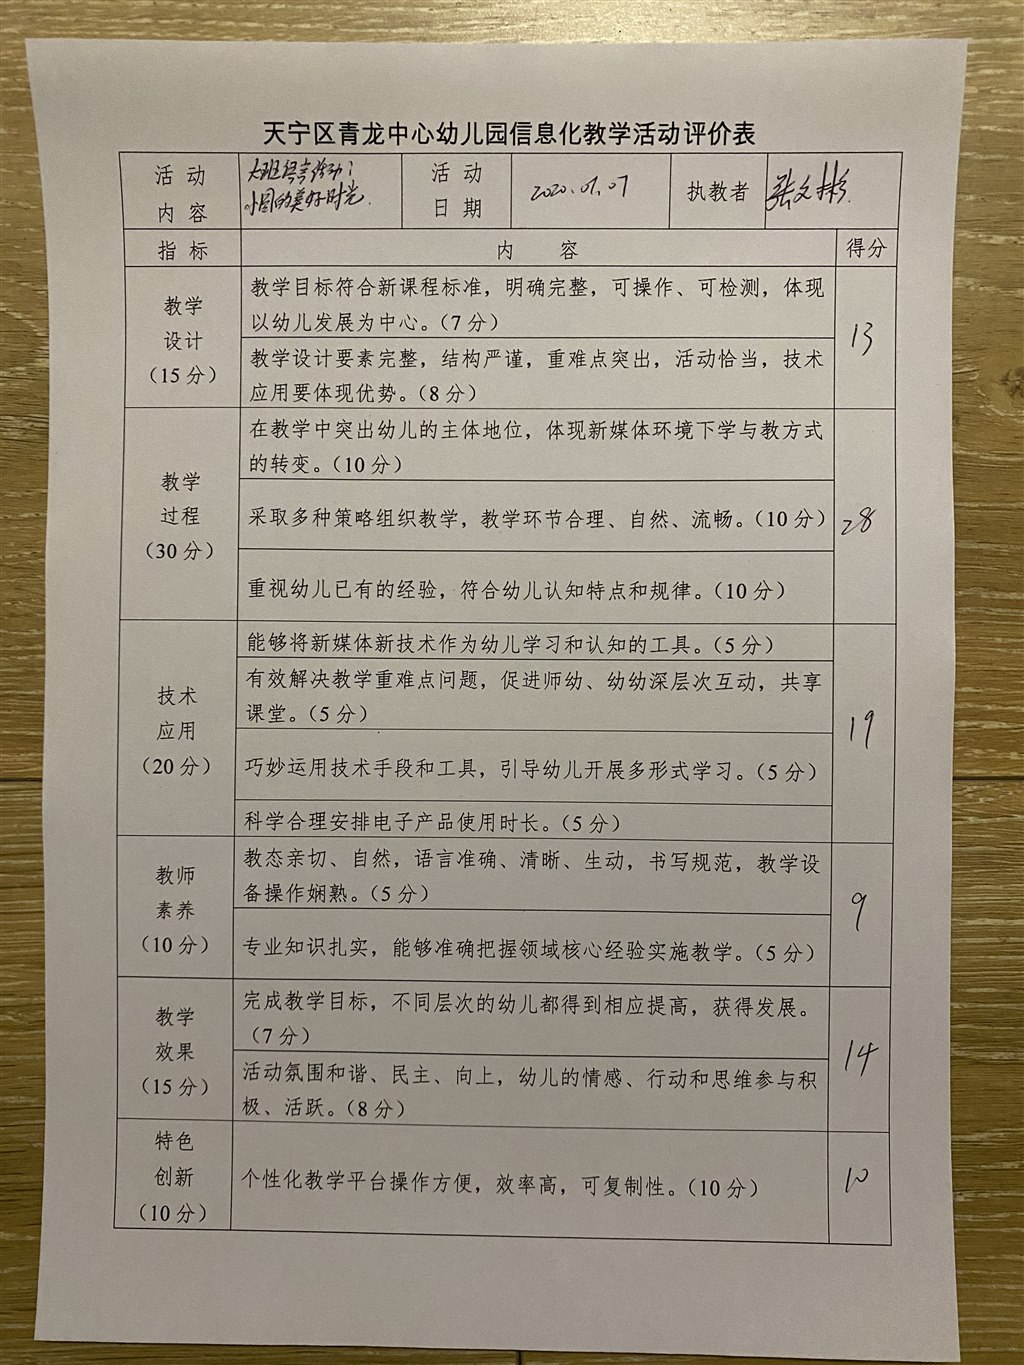 天宁区青龙中心幼儿园信息化教学活动评价表
活动
内容
大班语言活动：
小圆的美好时光.
活动
日期
2020.01.07
执教者
张文彬
指标
内 容
得分
教学
设计
（15 分）
教学目标符合新课程标准，明确完整，可操作、可检测，体现
以幼儿发展为中心。（7 分）
教学设计要素完整，结构严谨，重难点突出，活动恰当，技术
应用要体现优势。（8 分）
13
教学
过程
（30 分）
在教学中突出幼儿的主体地位，体现新媒体环境下学与教方式
的转变。（10 分）
采取多种策略组织教学，教学环节合理、自然、流畅。（10 分）
重视幼儿已有的经验，符合幼儿认知特点和规律。（10 分）
28
技术
应用
（20 分）
能够将新媒体新技术作为幼儿学习和认知的工具。（5 分）
有效解决教学重难点问题，促进师幼、幼幼深层次互动，共享
课堂。（5 分）
巧妙运用技术手段和工具，引导幼儿开展多形式学习。（5 分）
科学合理安排电子产品使用时长。（5 分）
19
教师
素养
（10 分）
教态亲切、自然，语言准确、清晰、生动，书写规范，教学设
备操作娴熟。（5 分）
专业知识扎实，能够准确把握领域核心经验实施教学。（5 分）
9
教学
效果
（15 分）
完成教学目标，不同层次的幼儿都得到相应提高，获得发展。
（7 分）
活动氛围和谐、民主、向上，幼儿的情感、行动和思维参与积
极、活跃。（8 分）
14
特色
创新
（10 分）
个性化教学平台操作方便，效率高，可复制性。（10 分）
10